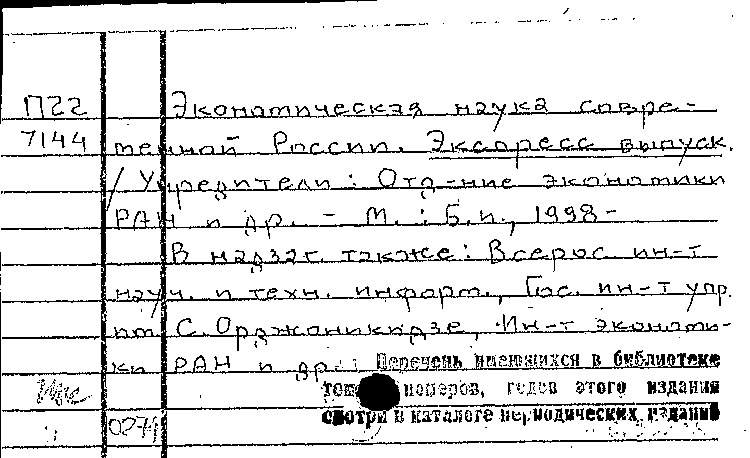 П22 Экономическая наука совре-
7144 менной России. Экспресс выпуск.
/ Учредители: Отд-ние экономики
РАН и др. - М.: Б.и., 1998-
В надзаг. также: Всерос. ин-т
науч. и техн. информ., Гос. ин-т упр.
им. С. Орджоникидзе, Ин-т экономи-
ки РАН и др.
Перечень имеющихся в библиотеке
номеров, годов этого издания
смотри в каталоге периодических изданий
0274